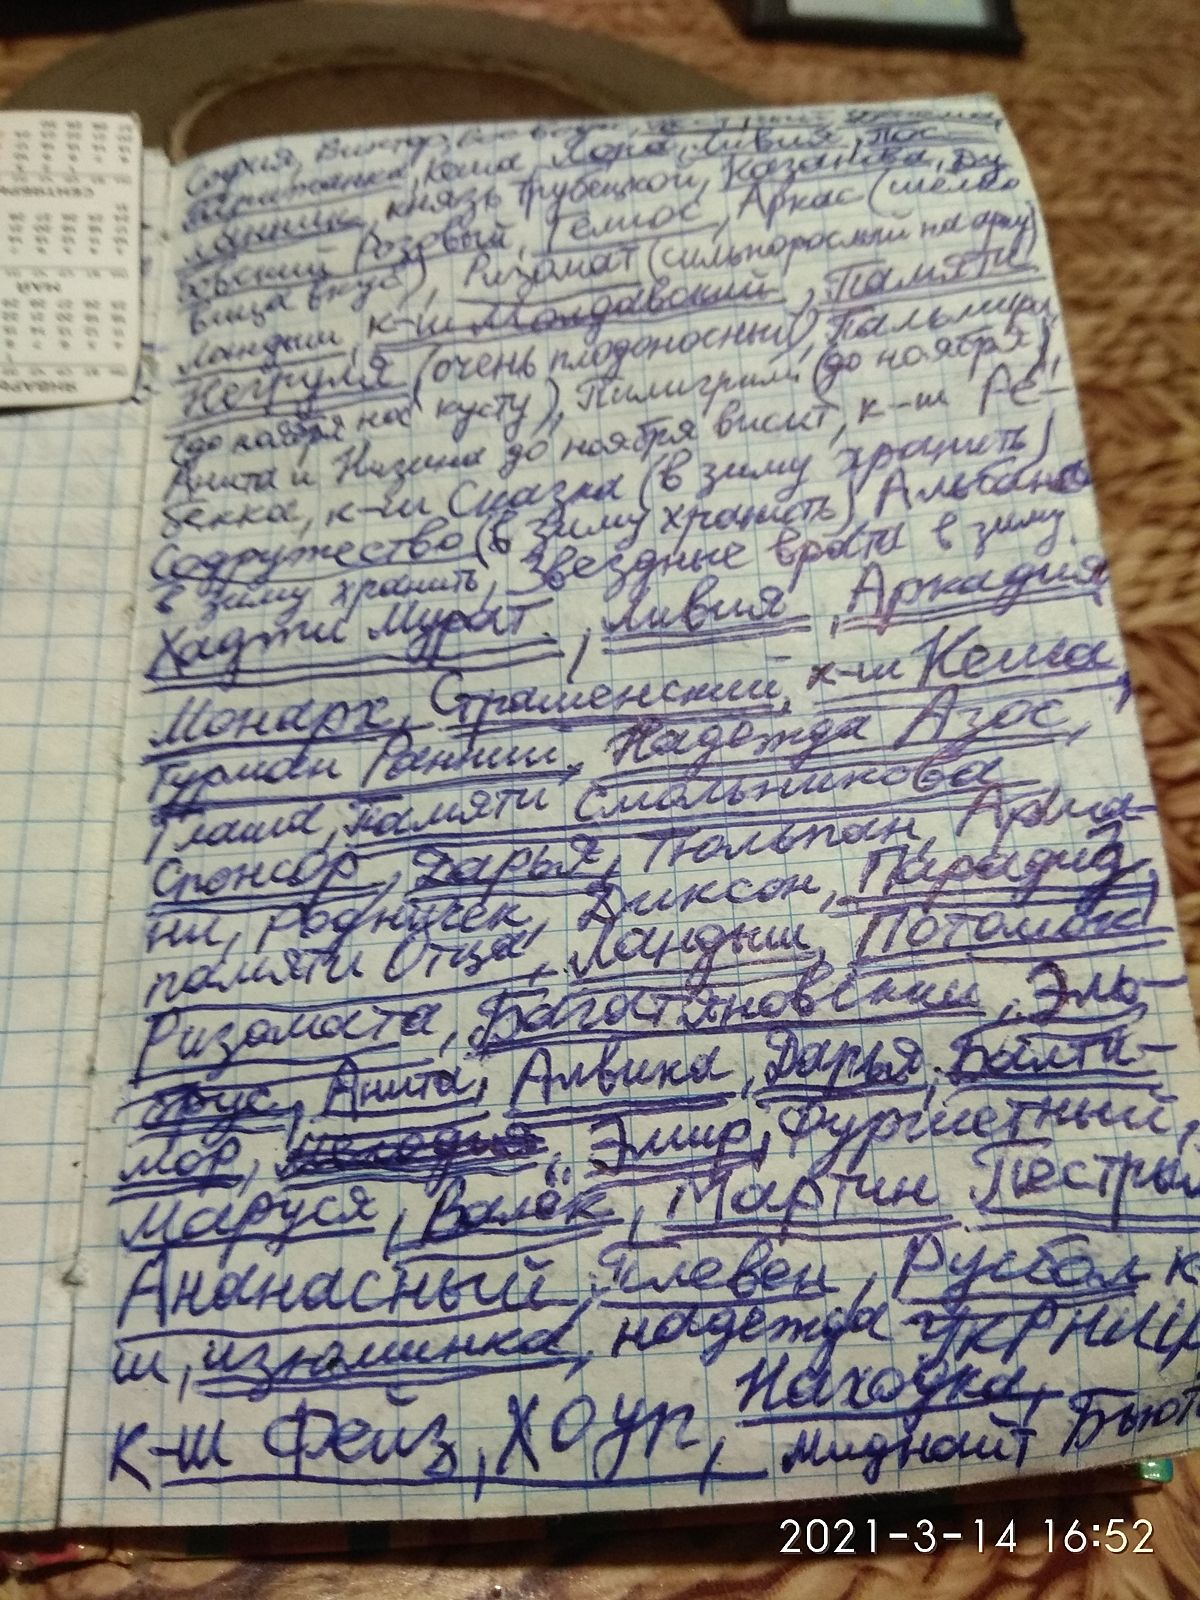 София, Виктор,
Аркадия, Кеша, Лора, Ливия, Пос-
ланник, князь Трубецкой, Казанова, Ду
ховский Розовый, Гелиос, Аркас (шелко
вица вкус), Ризамат (сильнорослый на арку)
Ландыш, к-ш Молдавский, Памяти
Негруля (очень плодоносный), Пальмира
(до ноября на кусту), Пилигрим (до ноября),
Анита и Низина до ноября висит, к-ш Ре-
бекка, к-ш Сказка (в зиму хранить)
Содружество (в зиму хранить) Альбанс
в зиму хранить, Звездные врата в зиму.
Хаджи Мурат, Ливия, Аркадия,
Монарх, Страшенский, к-ш Кеша,
Гурман Ранний, Надежда Азос,
Глаша, Памяти Смольникова
Спонсор, Дарья, Тюльпан, Арма-
ни, Родничек, Диксон, Парадиз,
памяти Отца, Ландыш, Потомок
Ризамата, Багатяновский, Эль-
брус, Анита, Алвика, Дарья, Балти-
мор, Эмир, Фуршетный,
Маруся, Валёк, Мартин Пестрый
Ананасный, Плевен, Русбол к-
ш, изюминка, надежда УКРНИИР
к-ш Фейз, Хоуп, Находка,
миднайт Бьюти
2021-3-14 16:52
ЯНВАРЬ
МАЙ
СЕНТЯБРЬ